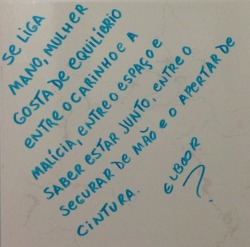 SE LIGA
MANO, MULHER
GOSTA DE EQUILÍBRIO
ENTRE O CARINHO E A
MALÍCIA, ENTRE O ESPAÇO E
SABER ESTAR JUNTO, ENTRE O
SEGURAR DE MÃO E O APERTAR DE
CINTURA.